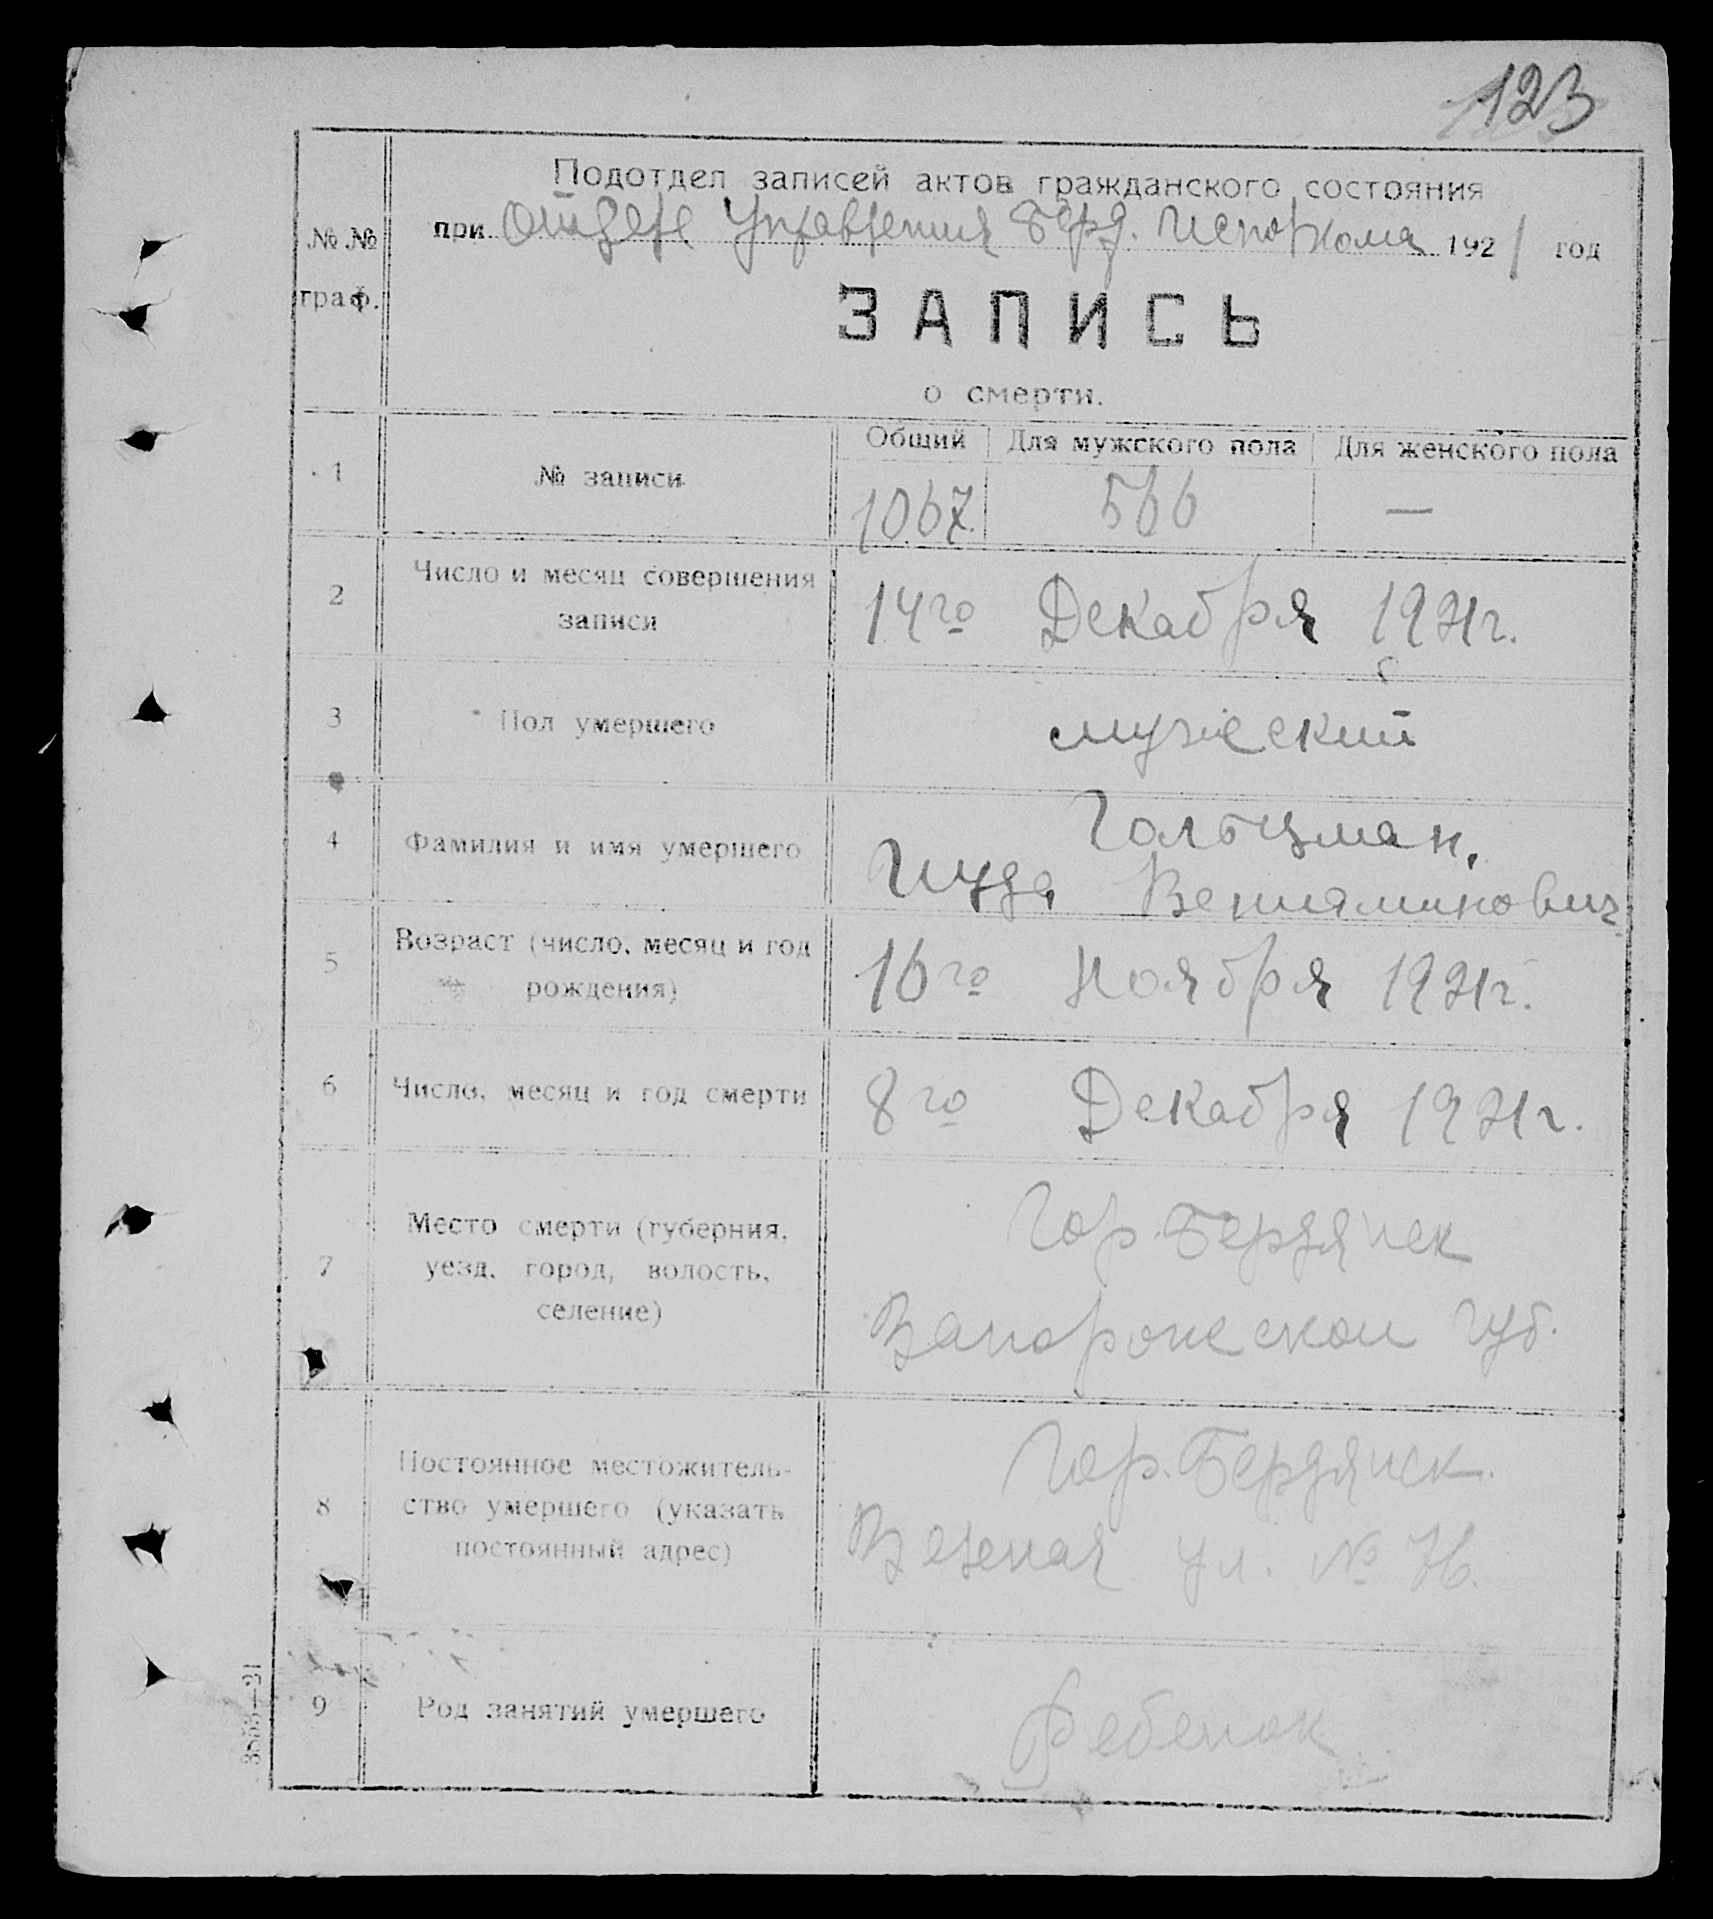 123
Подотдел записей актов гражданского состояния
при Отделе Управления Берд. Исполкома 1921 год
№ №
граф.
ЗАПИСЬ
о смерти.
Общий Для мужского пола Для женского пола
1 № записи 1067 566 —
2 Число и месяц совершения
записи
14го Декабря 1921г.
3 Пол умершего мужеский
4 Фамилия и имя умершего
Гольцман,
Вениаминович
5 Возраст (число, месяц и год
рождения)
16го Ноября 1921г.
6 Число, месяц и год смерти 8го Декабря 1921г.
7 Место смерти (губерния,
уезд, город, волость,
селение)
Гор. Бердянск
Запорожской губ.
8 Постоянное местожитель-
ство умершего (указать
постоянный адрес)
Гор. Бердянск.
ул. №
9 Род занятий умершего Ребенок
3553—21